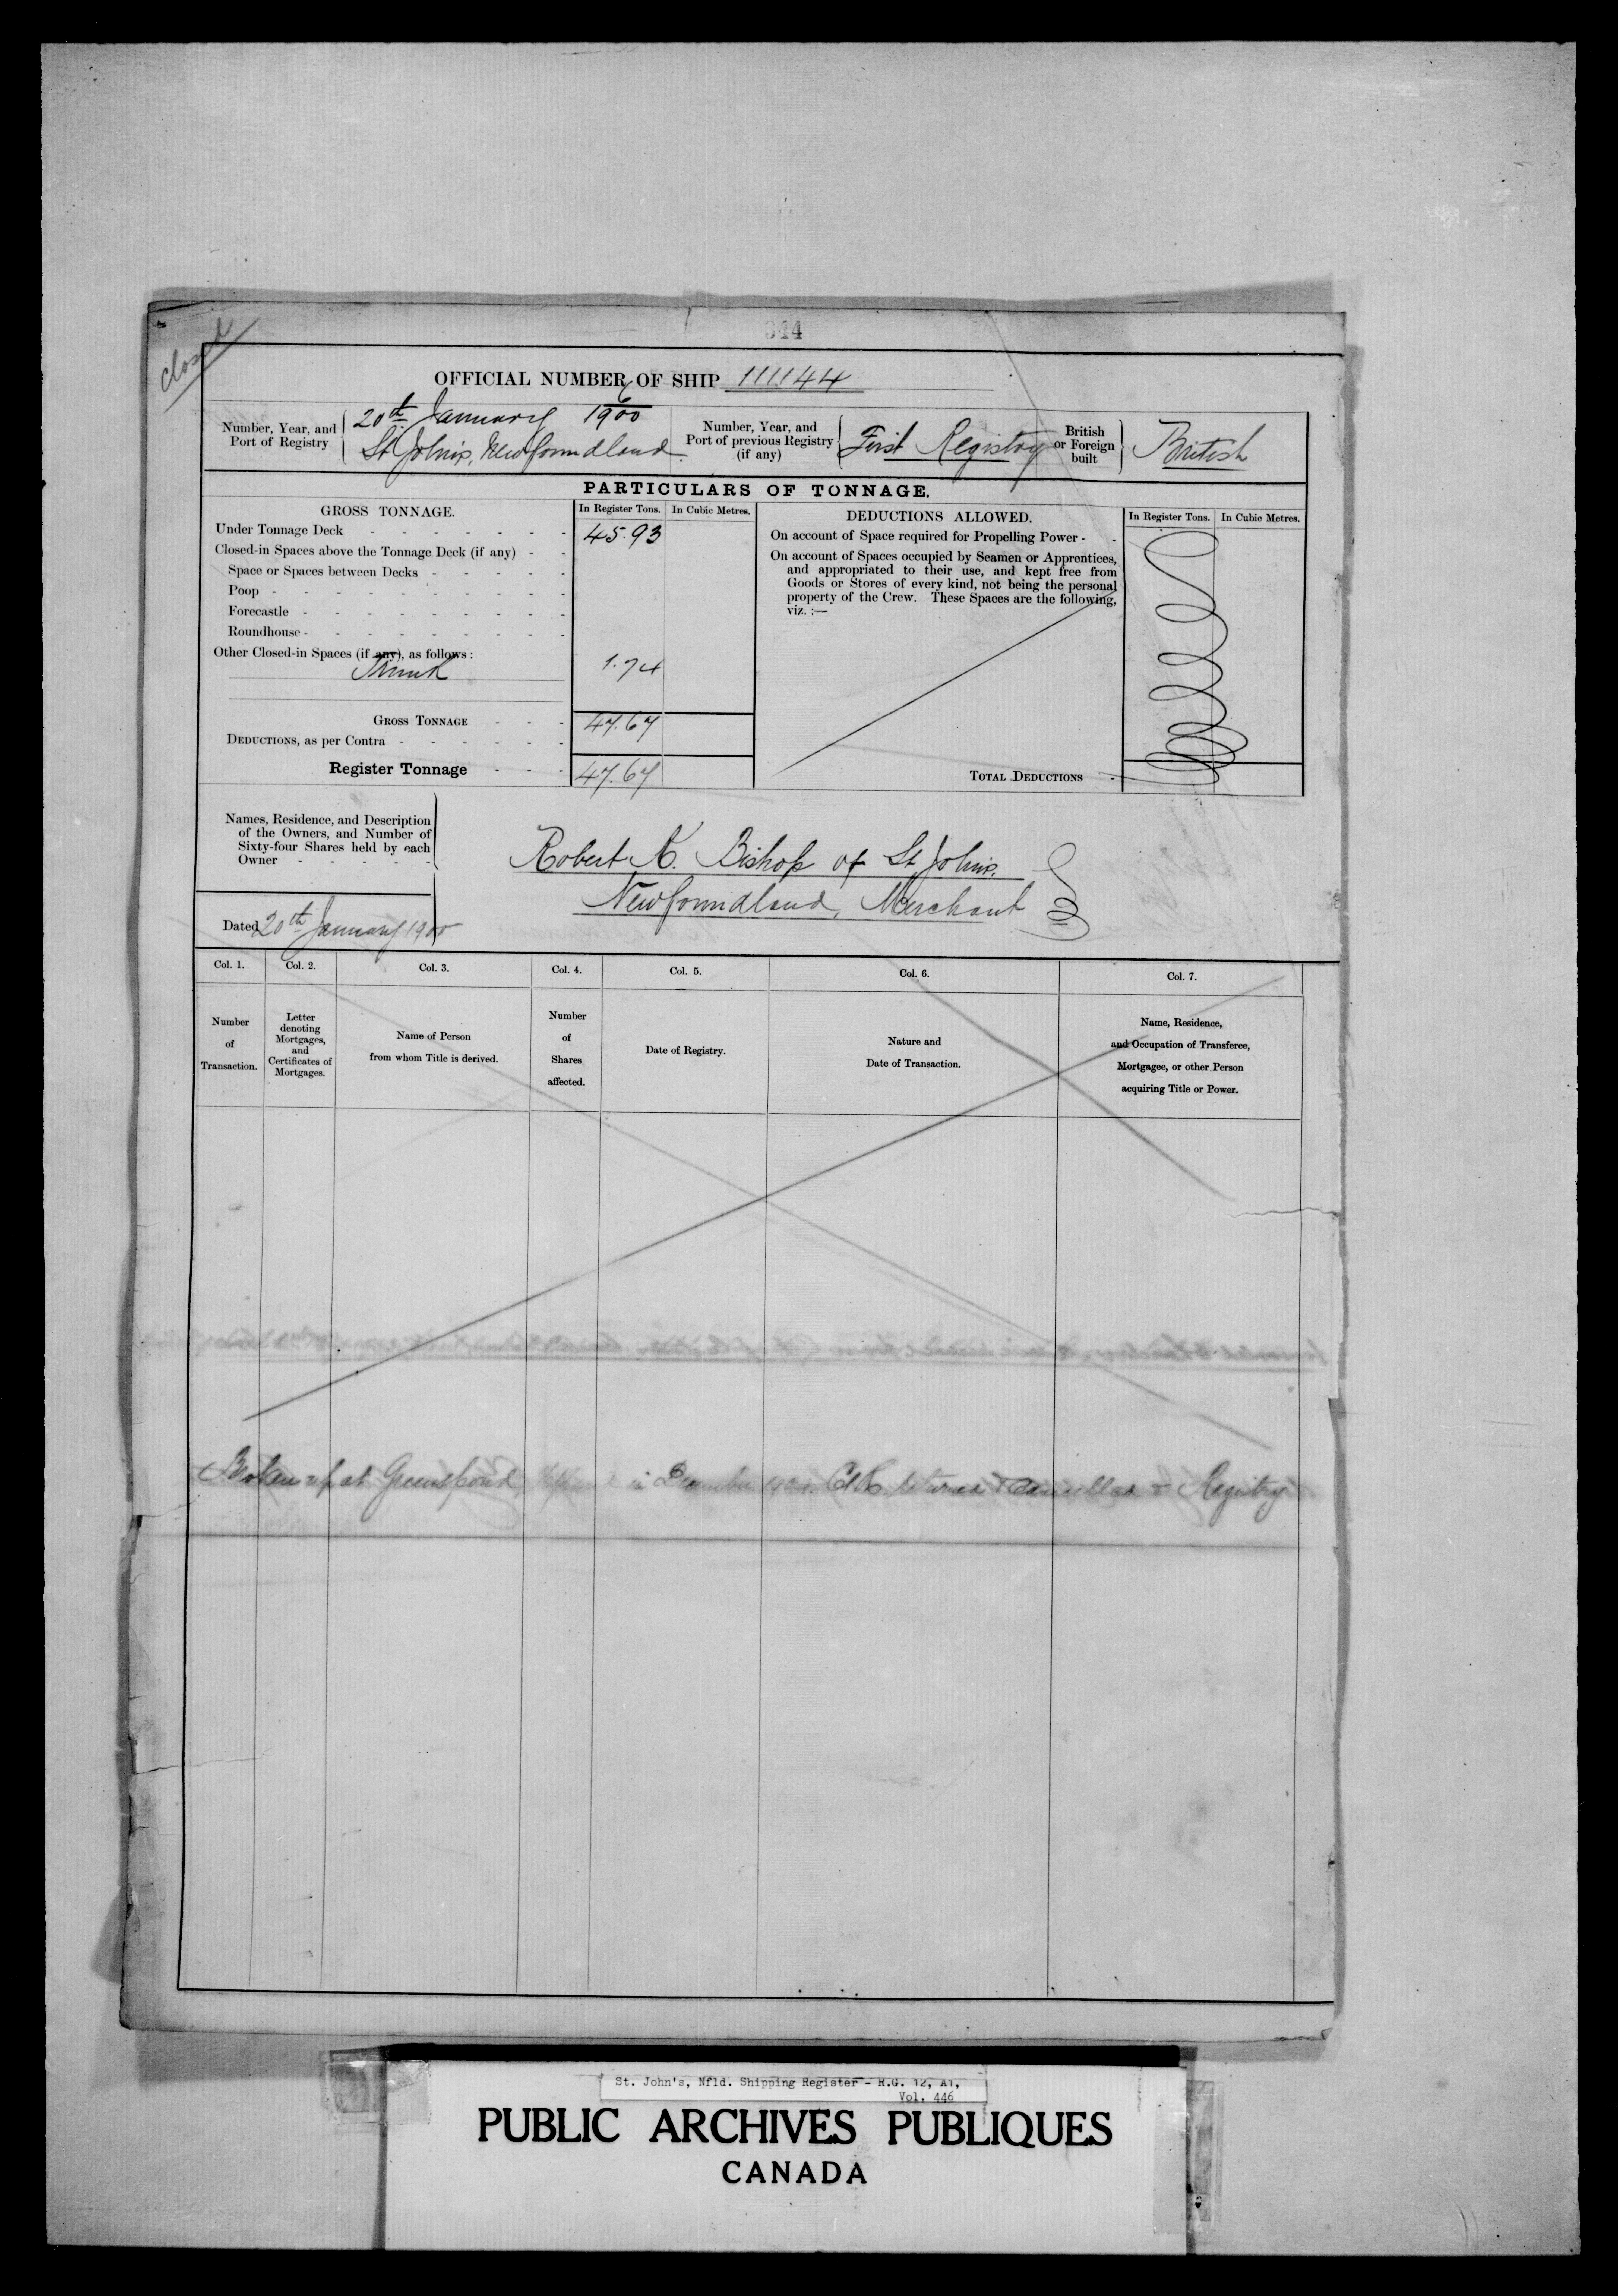 344
closed
OFFICIAL NUMBER OF SHIP 111144
Number, Year, and Port of Registry
6
20th January 1900
St. John's, Newfoundland
Number, Year, and Port of previous Registry (if any)
First Registry
British or Foreign built
British
PARTICULARS OF TONNAGE.
GROSS TONNAGE.
In Register Tons. In Cubic Metres.
Under Tonnage Deck - - - - - - - 45.93
Closed-in Spaces above the Tonnage Deck (if any) - -
Space or Spaces between Decks - - - - -
Poop - - - - - - - - - -
Forecastle - - - - - - - - -
Roundhouse - - - - - - - - -
Other Closed-in Spaces (if any), as follows :
Trunk 1.74
GROSS TONNAGE - - - 47.67
DEDUCTIONS, as per Contra - - - - - -
Register Tonnage - - - 47.67
DEDUCTIONS ALLOWED.
In Register Tons. In Cubic Metres.
On account of Space required for Propelling Power - -
On account of Spaces occupied by Seamen or Apprentices,
and appropriated to their use, and kept free from
Goods or Stores of every kind, not being the personal
property of the Crew. These Spaces are the following,
viz. :—
TOTAL DEDUCTIONS -
Names, Residence, and Description
of the Owners, and Number of
Sixty-four Shares held by each
Owner - - - - -
Robert K. Bishop of St John's.
Newfoundland, Merchant
Dated 20th January 1900
Col. 1. Col. 2. Col. 3. Col. 4. Col. 5. Col. 6. Col. 7.
Number
of
Transaction.
Letter
denoting
Mortgages,
and
Certificates of
Mortgages.
Name of Person
from whom Title is derived.
Number
of
Shares
affected.
Date of Registry.
Nature and
Date of Transaction.
Name, Residence,
and Occupation of Transferee,
Mortgagee, or other Person
acquiring Title or Power.
Broken up at Greenspond in December Returned & Cancelled & Registry
St. John's, Nfld. Shipping Register - R.G. 12, A1,
Vol. 446
PUBLIC ARCHIVES PUBLIQUES
CANADA